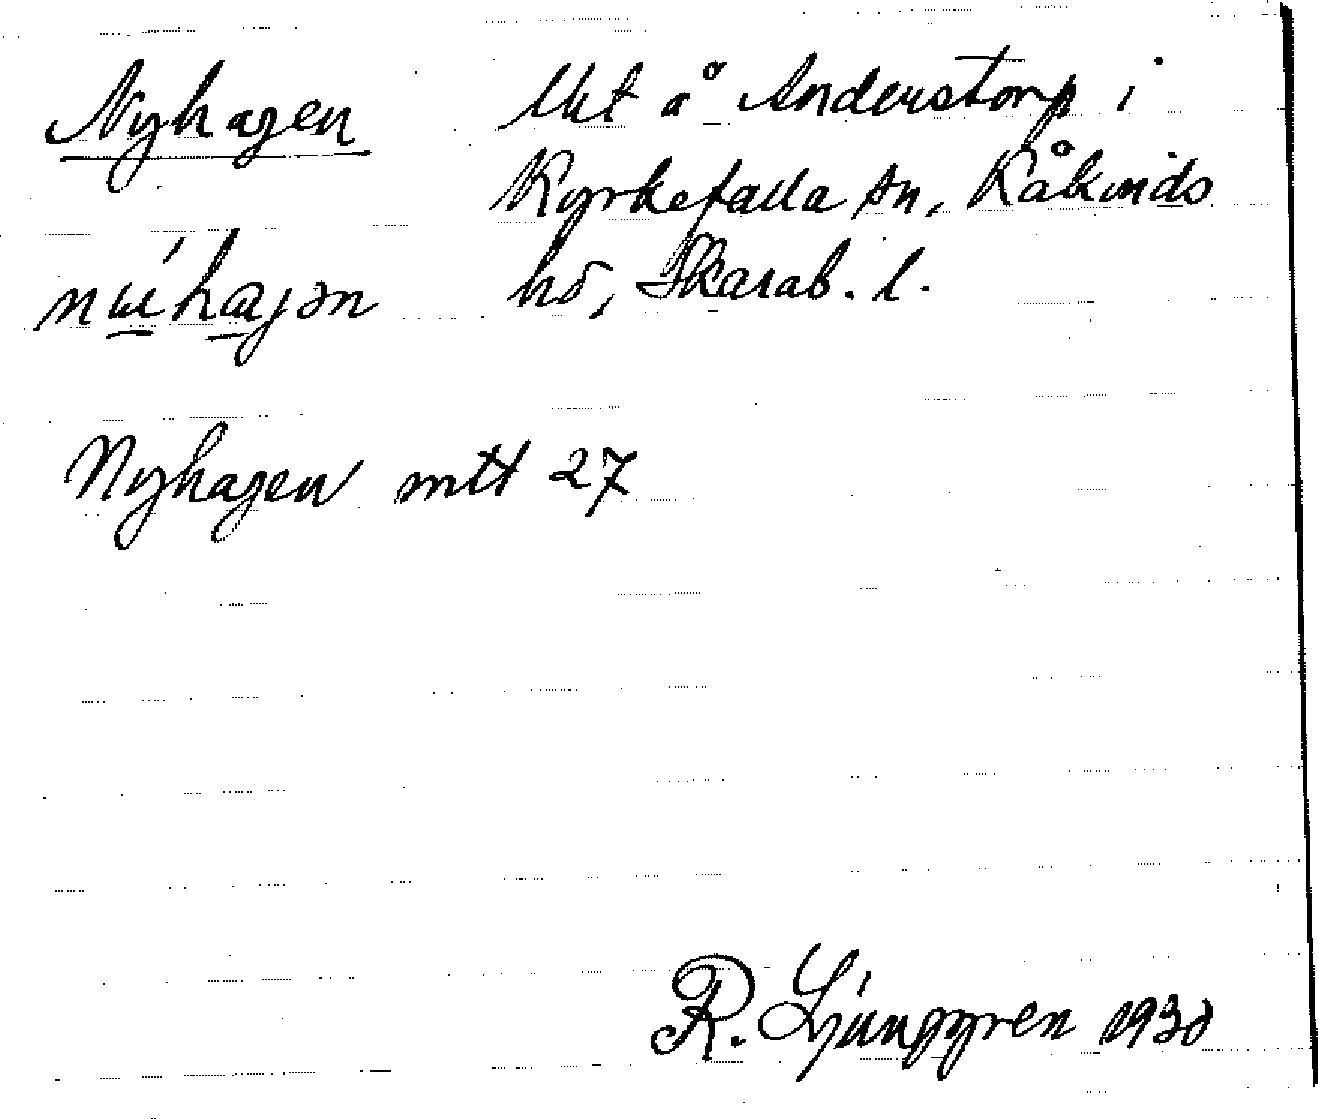 Nyhagen
Ukt å Anderstorp i
Kyrkefalla sn, Kåkinds
hd, Skarab. l.
Nyhagen mtt 27
R. Ljunggren 1930